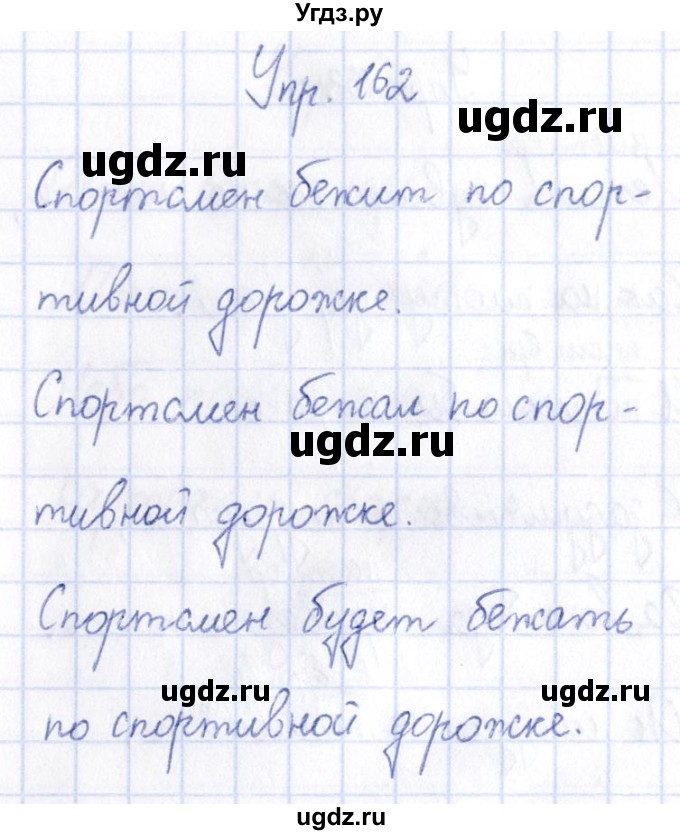 Угдз.ру
Упр. 162
ugdz.ru
ugdz.ru
Спортсмен бежит по спор-
тивной дорожке.
Спортсмен бежал по спор-
ugdz.ru
тивной дорожке.
Спортсмен будет бежать
ugdz.ru
ugdz.ru
по спортивной дорожке.
ugdz.ru